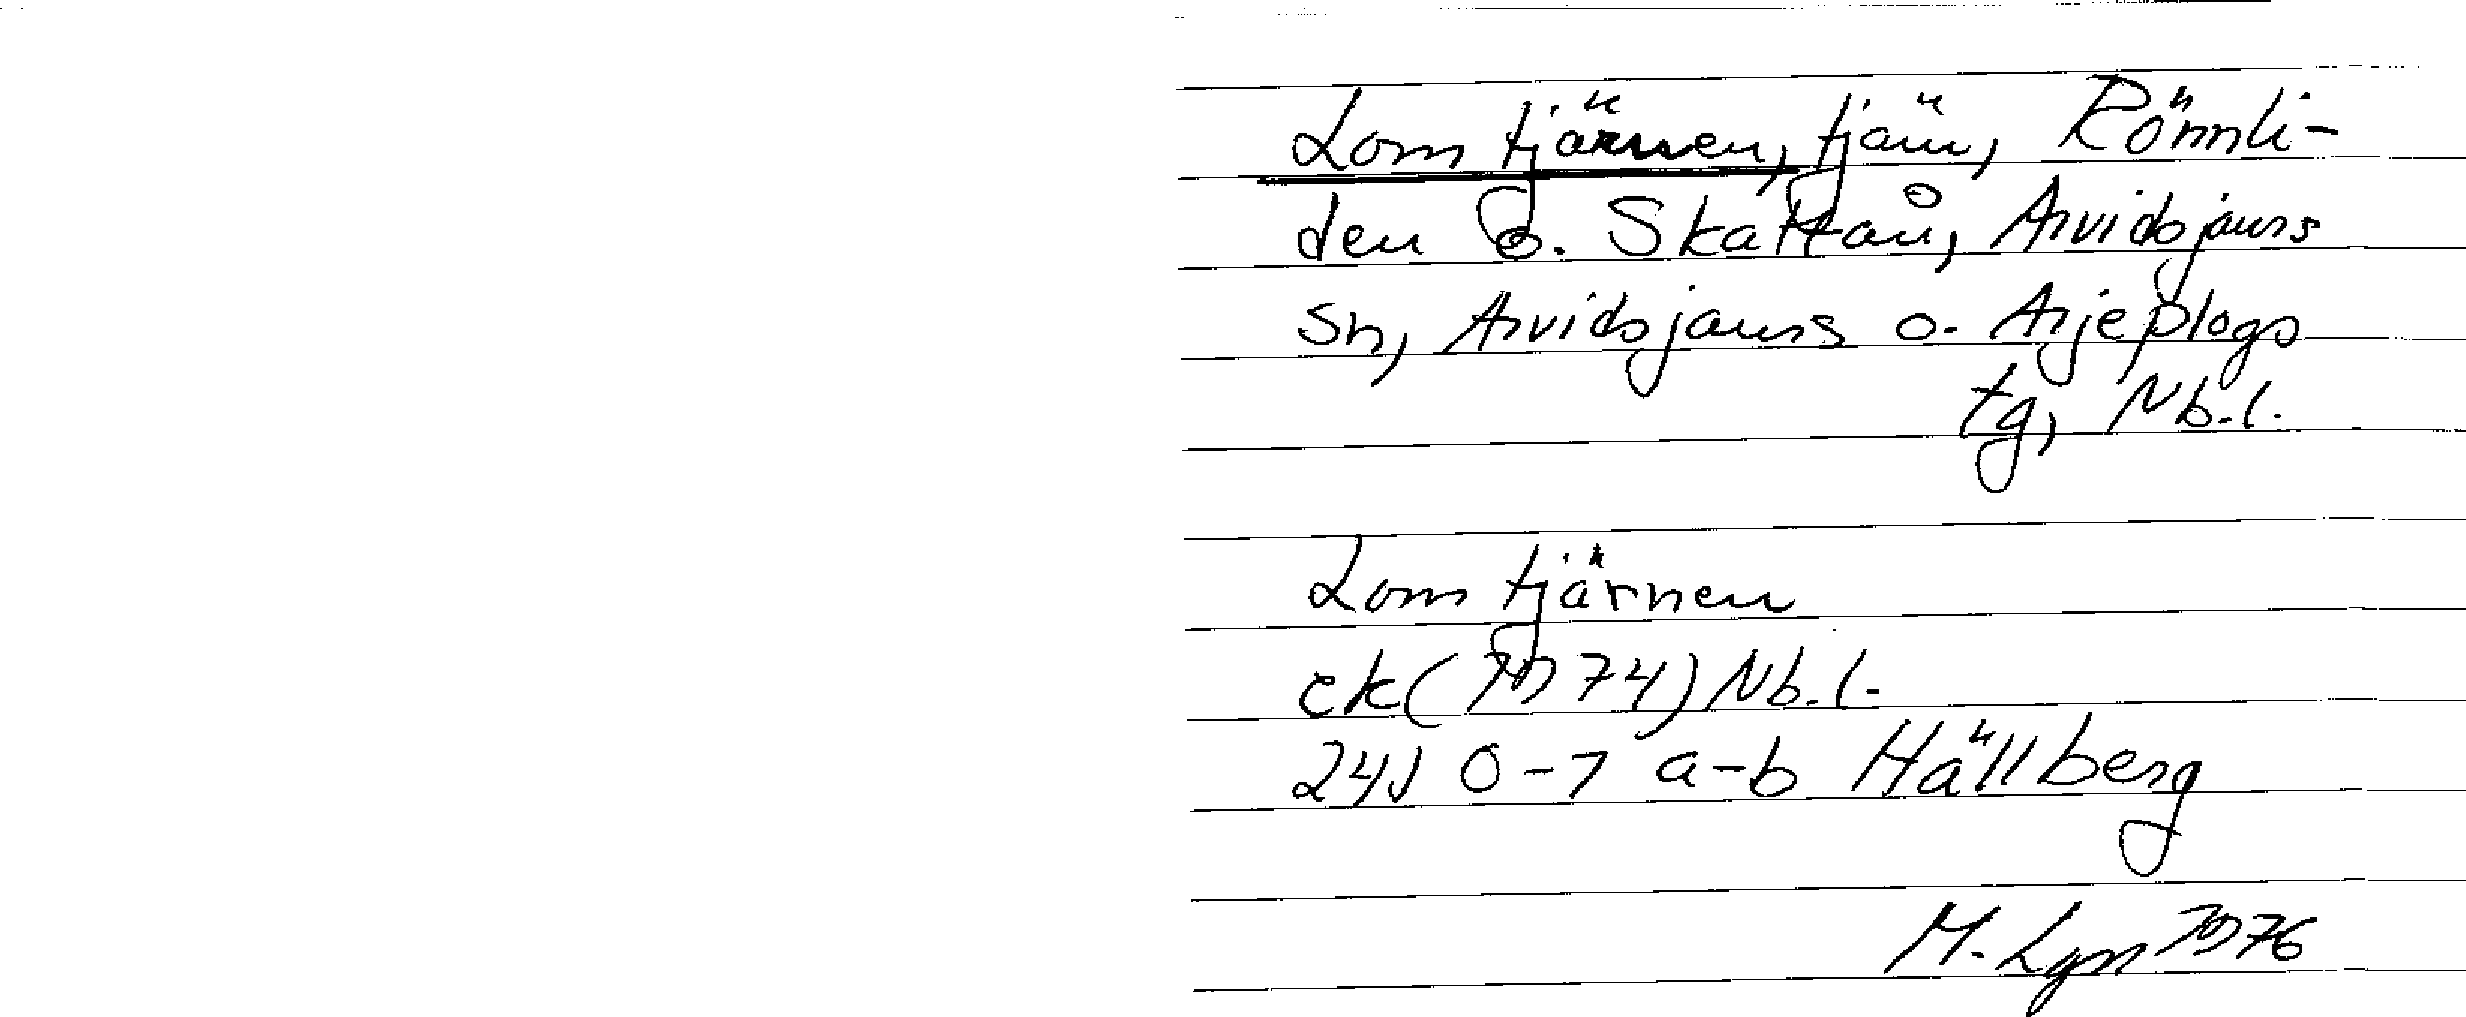 Lomtjärnen, tjärn, Rönnli-
den o. Skattån, Arvidsjaurs
sn, Arvidsjaurs o. Arjeplogs
tg, Nb.l.
Lomtjärnen
ek(1974) Nb.l.
24J 0-1 a-b Hällberg
M. Lgn 1976